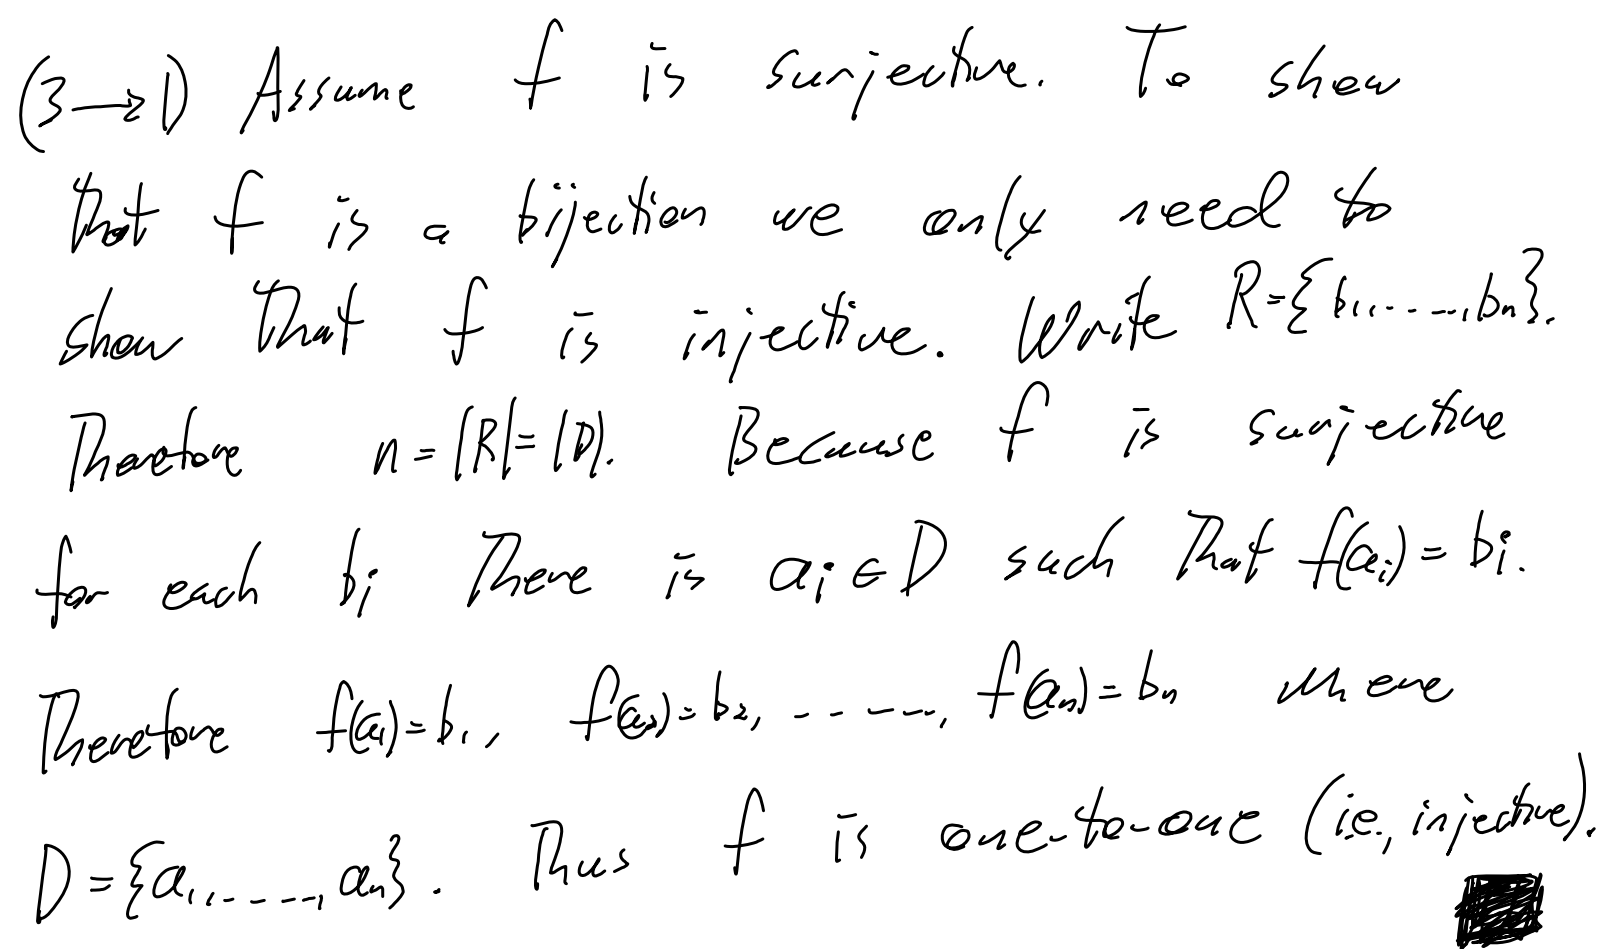 (3→1) Assume f is surjective. To show
that f is a bijection we only need to
show that f is injective. Write R={b₁,.....,bₙ}.
Therefore n=|R|=|D|. Because f is surjective
for each bᵢ there is aᵢ∈D such that f(aᵢ)=bᵢ.
Therefore f(a₁)=b₁, f(a₂)=b₂,.....,f(aₙ)=bₙ where
D={a₁,.....,aₙ}. Thus f is one-to-one (i.e., injective).